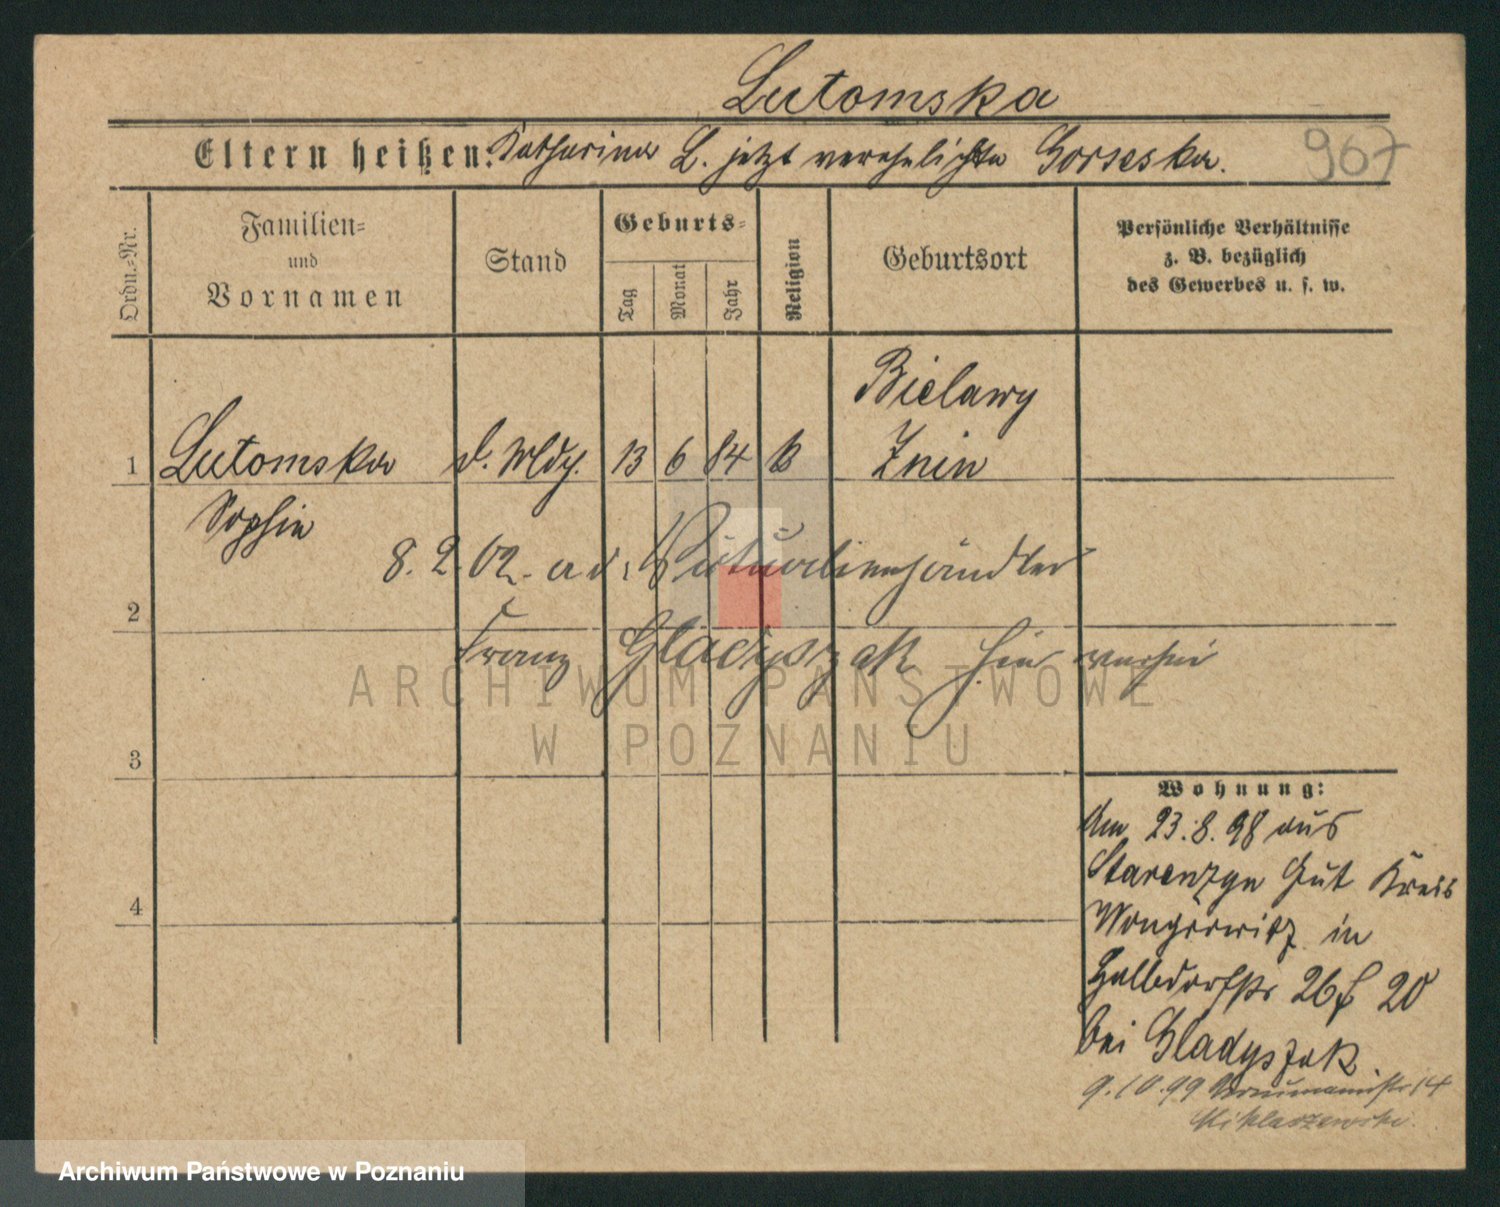 Lutomska
Eltern heißen: Katharina L. jetzt verehelichte Gorseska.
967
Ordn.-Nr.
Familien-
und
Vornamen
Stand
Geburts-
Tag
Monat
Jahr
Religion
Geburtsort
Persönliche Verhältnisse
z. B. bezüglich
des Gewerbes u. s. w.
Bielawy
1 Lutomska d. Mdch. 13 6 84 k Znin
Sophie
8. 2. 02. ad. Victualienhändler
2
Franz Gladyszak hier
ARCHIWUM PAŃSTWOWE
W POZNANIU
3
4
Wohnung:
Am 23.8.98 aus
Starenzyn Gut Kreis
Wongrowitz in
Halbdorfstr 26 20
bei Gladyszak.
9.10.99 Naumannstr 14
Miklaszewski.
Archiwum Państwowe w Poznaniu